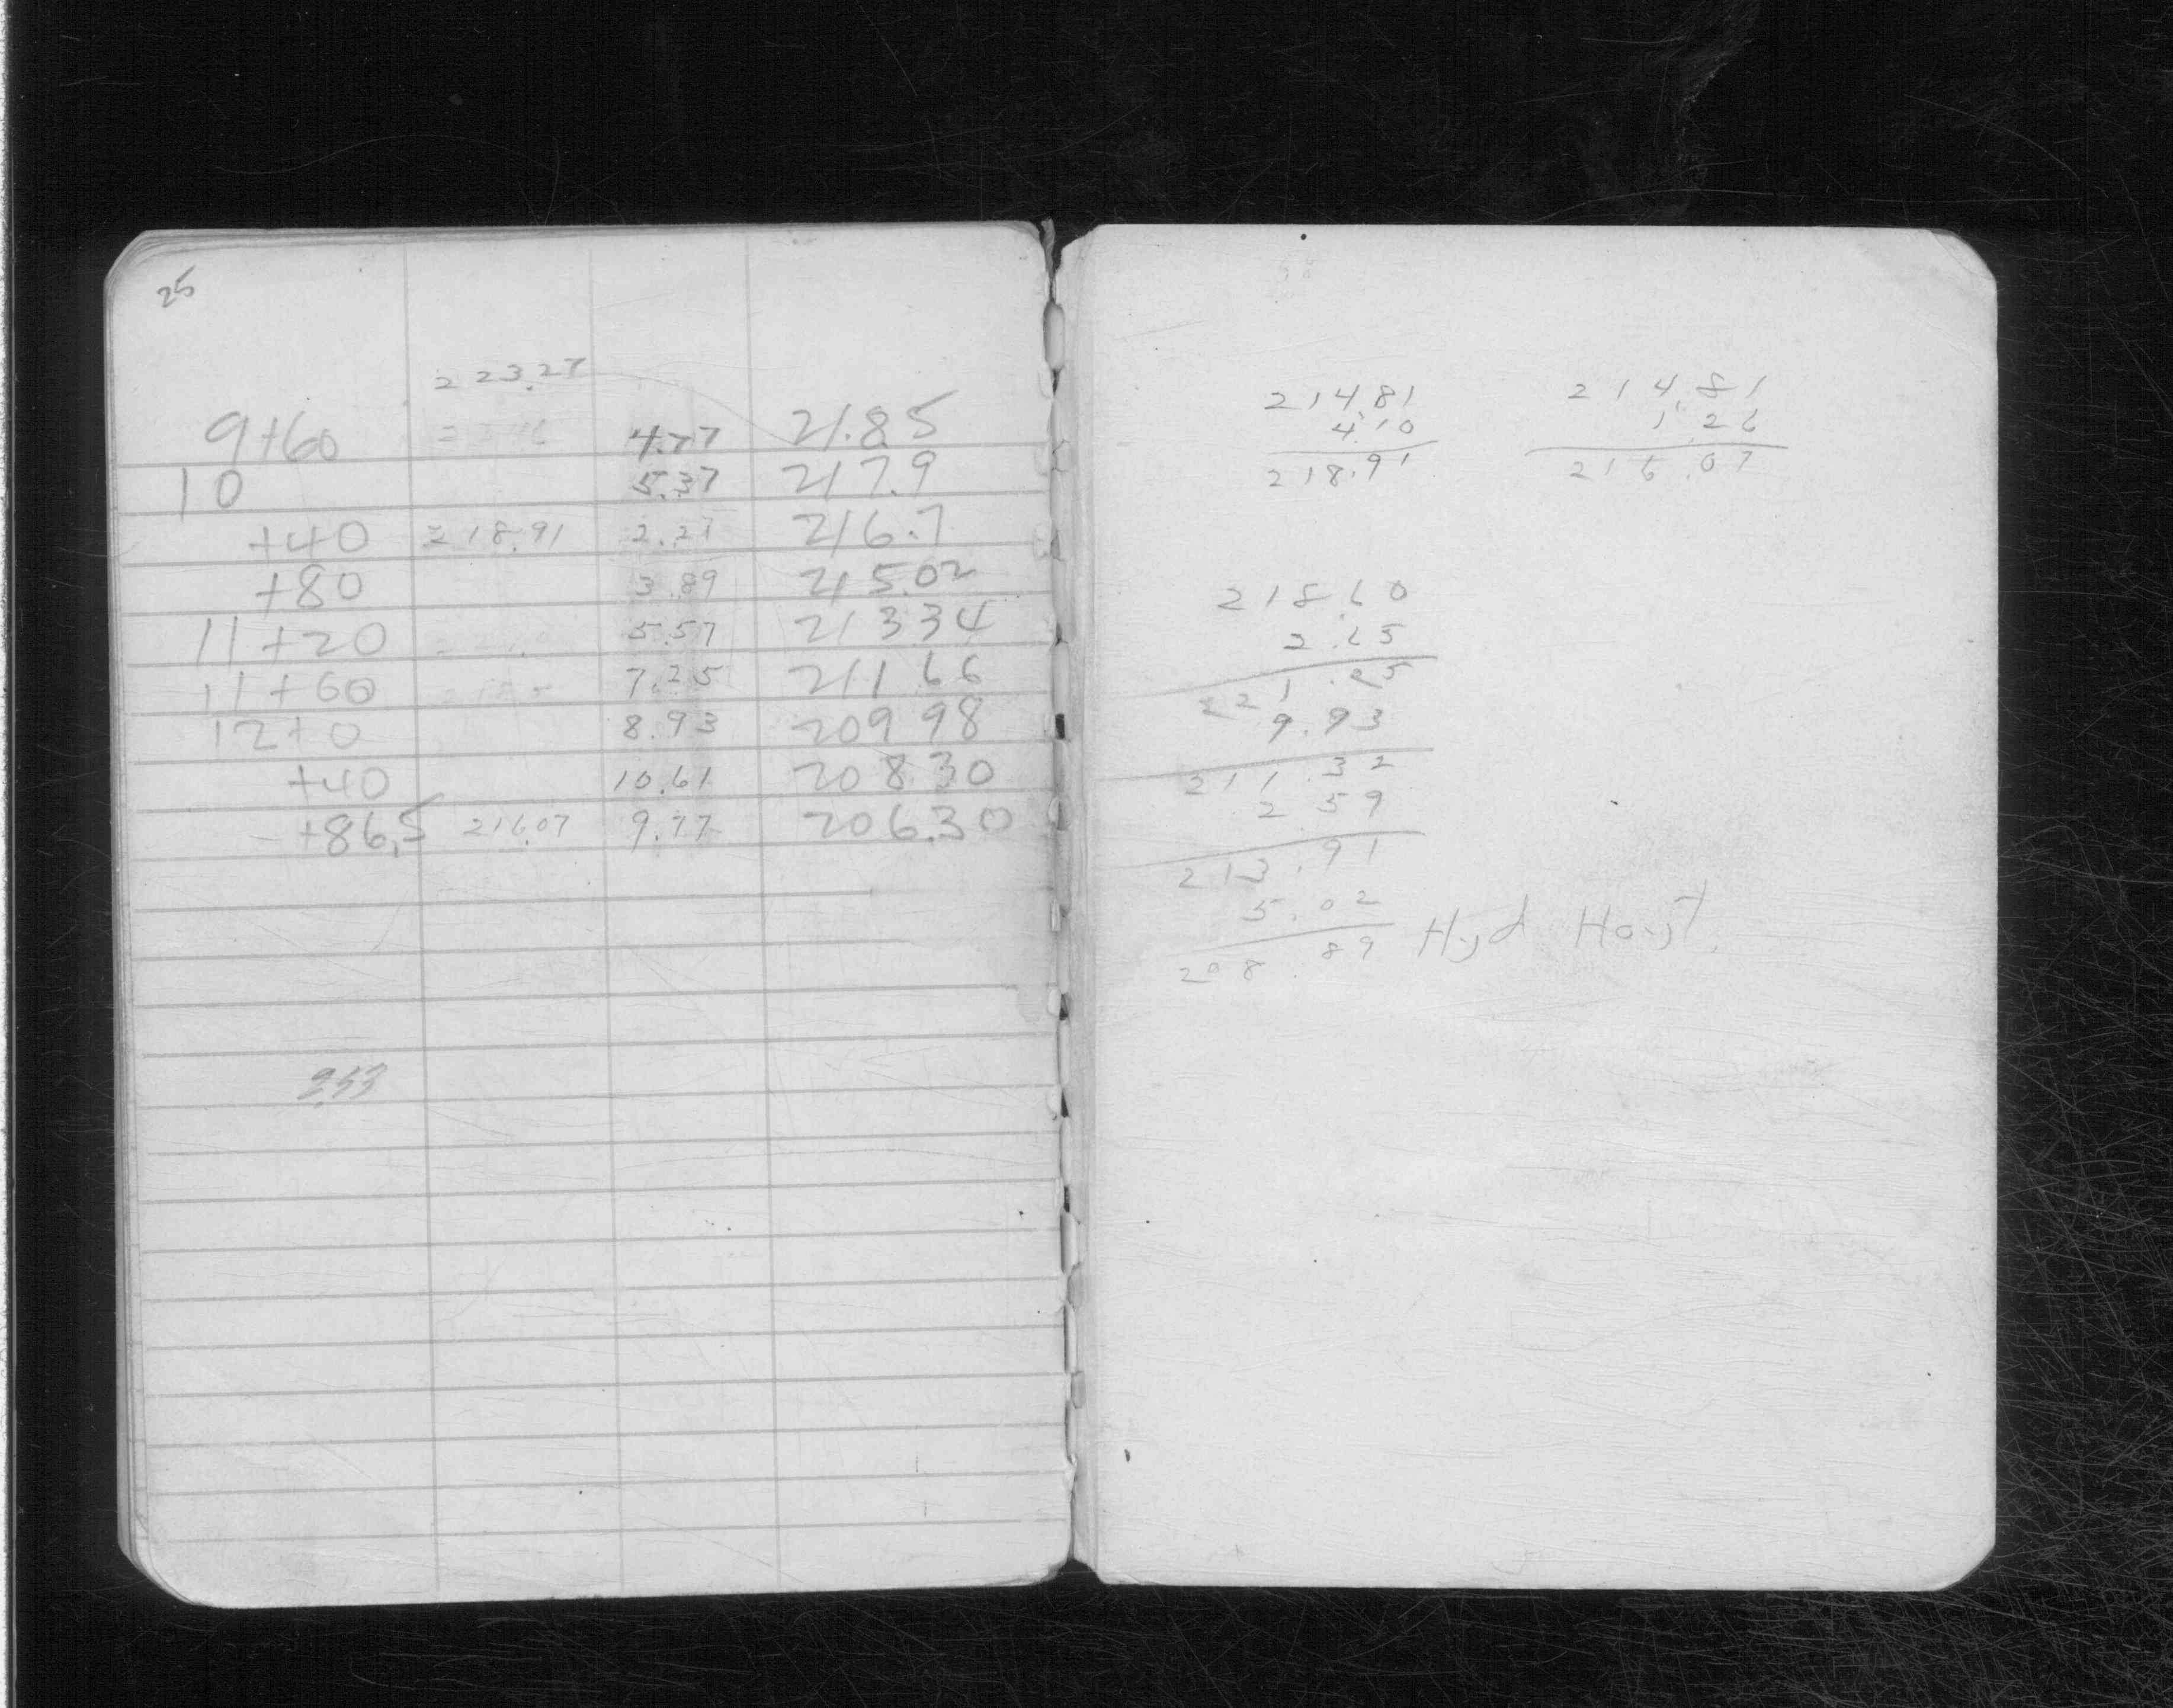 25
223.27
9+60 4.77 218.5
10 5.37 217.9
+40 218.91 2.21 216.7
+80 3.89 215.02
11+20 5.57 213 34
11+60 7.25 211 66
12+0 8.93 209 98
+40 10.61 208.30
+86.5 216.07 9.77 206.30
253
214 81
4.10
218.91
214.81
1.26
216.07
218.60
2.65
221.25
9.93
211.32
2 59
213.91
5.02
208.89 Hyd